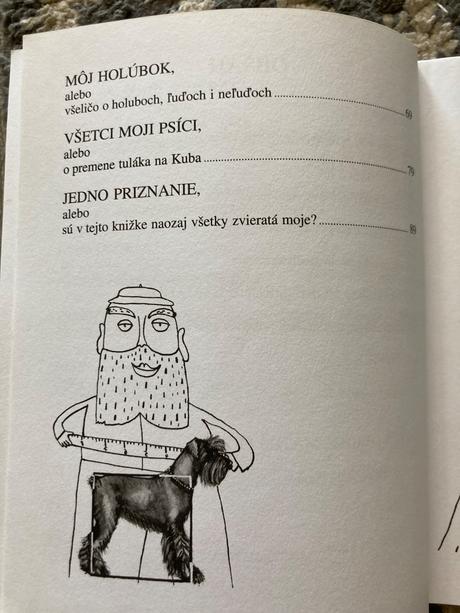 MÔJ HOLÚBOK,
alebo
všeličo o holuboch, ľuďoch i neľuďoch 69
VŠETCI MOJI PSÍCI,
alebo
o premene tuláka na Kuba 79
JEDNO PRIZNANIE,
alebo
sú v tejto knižke naozaj všetky zvieratá moje? 89